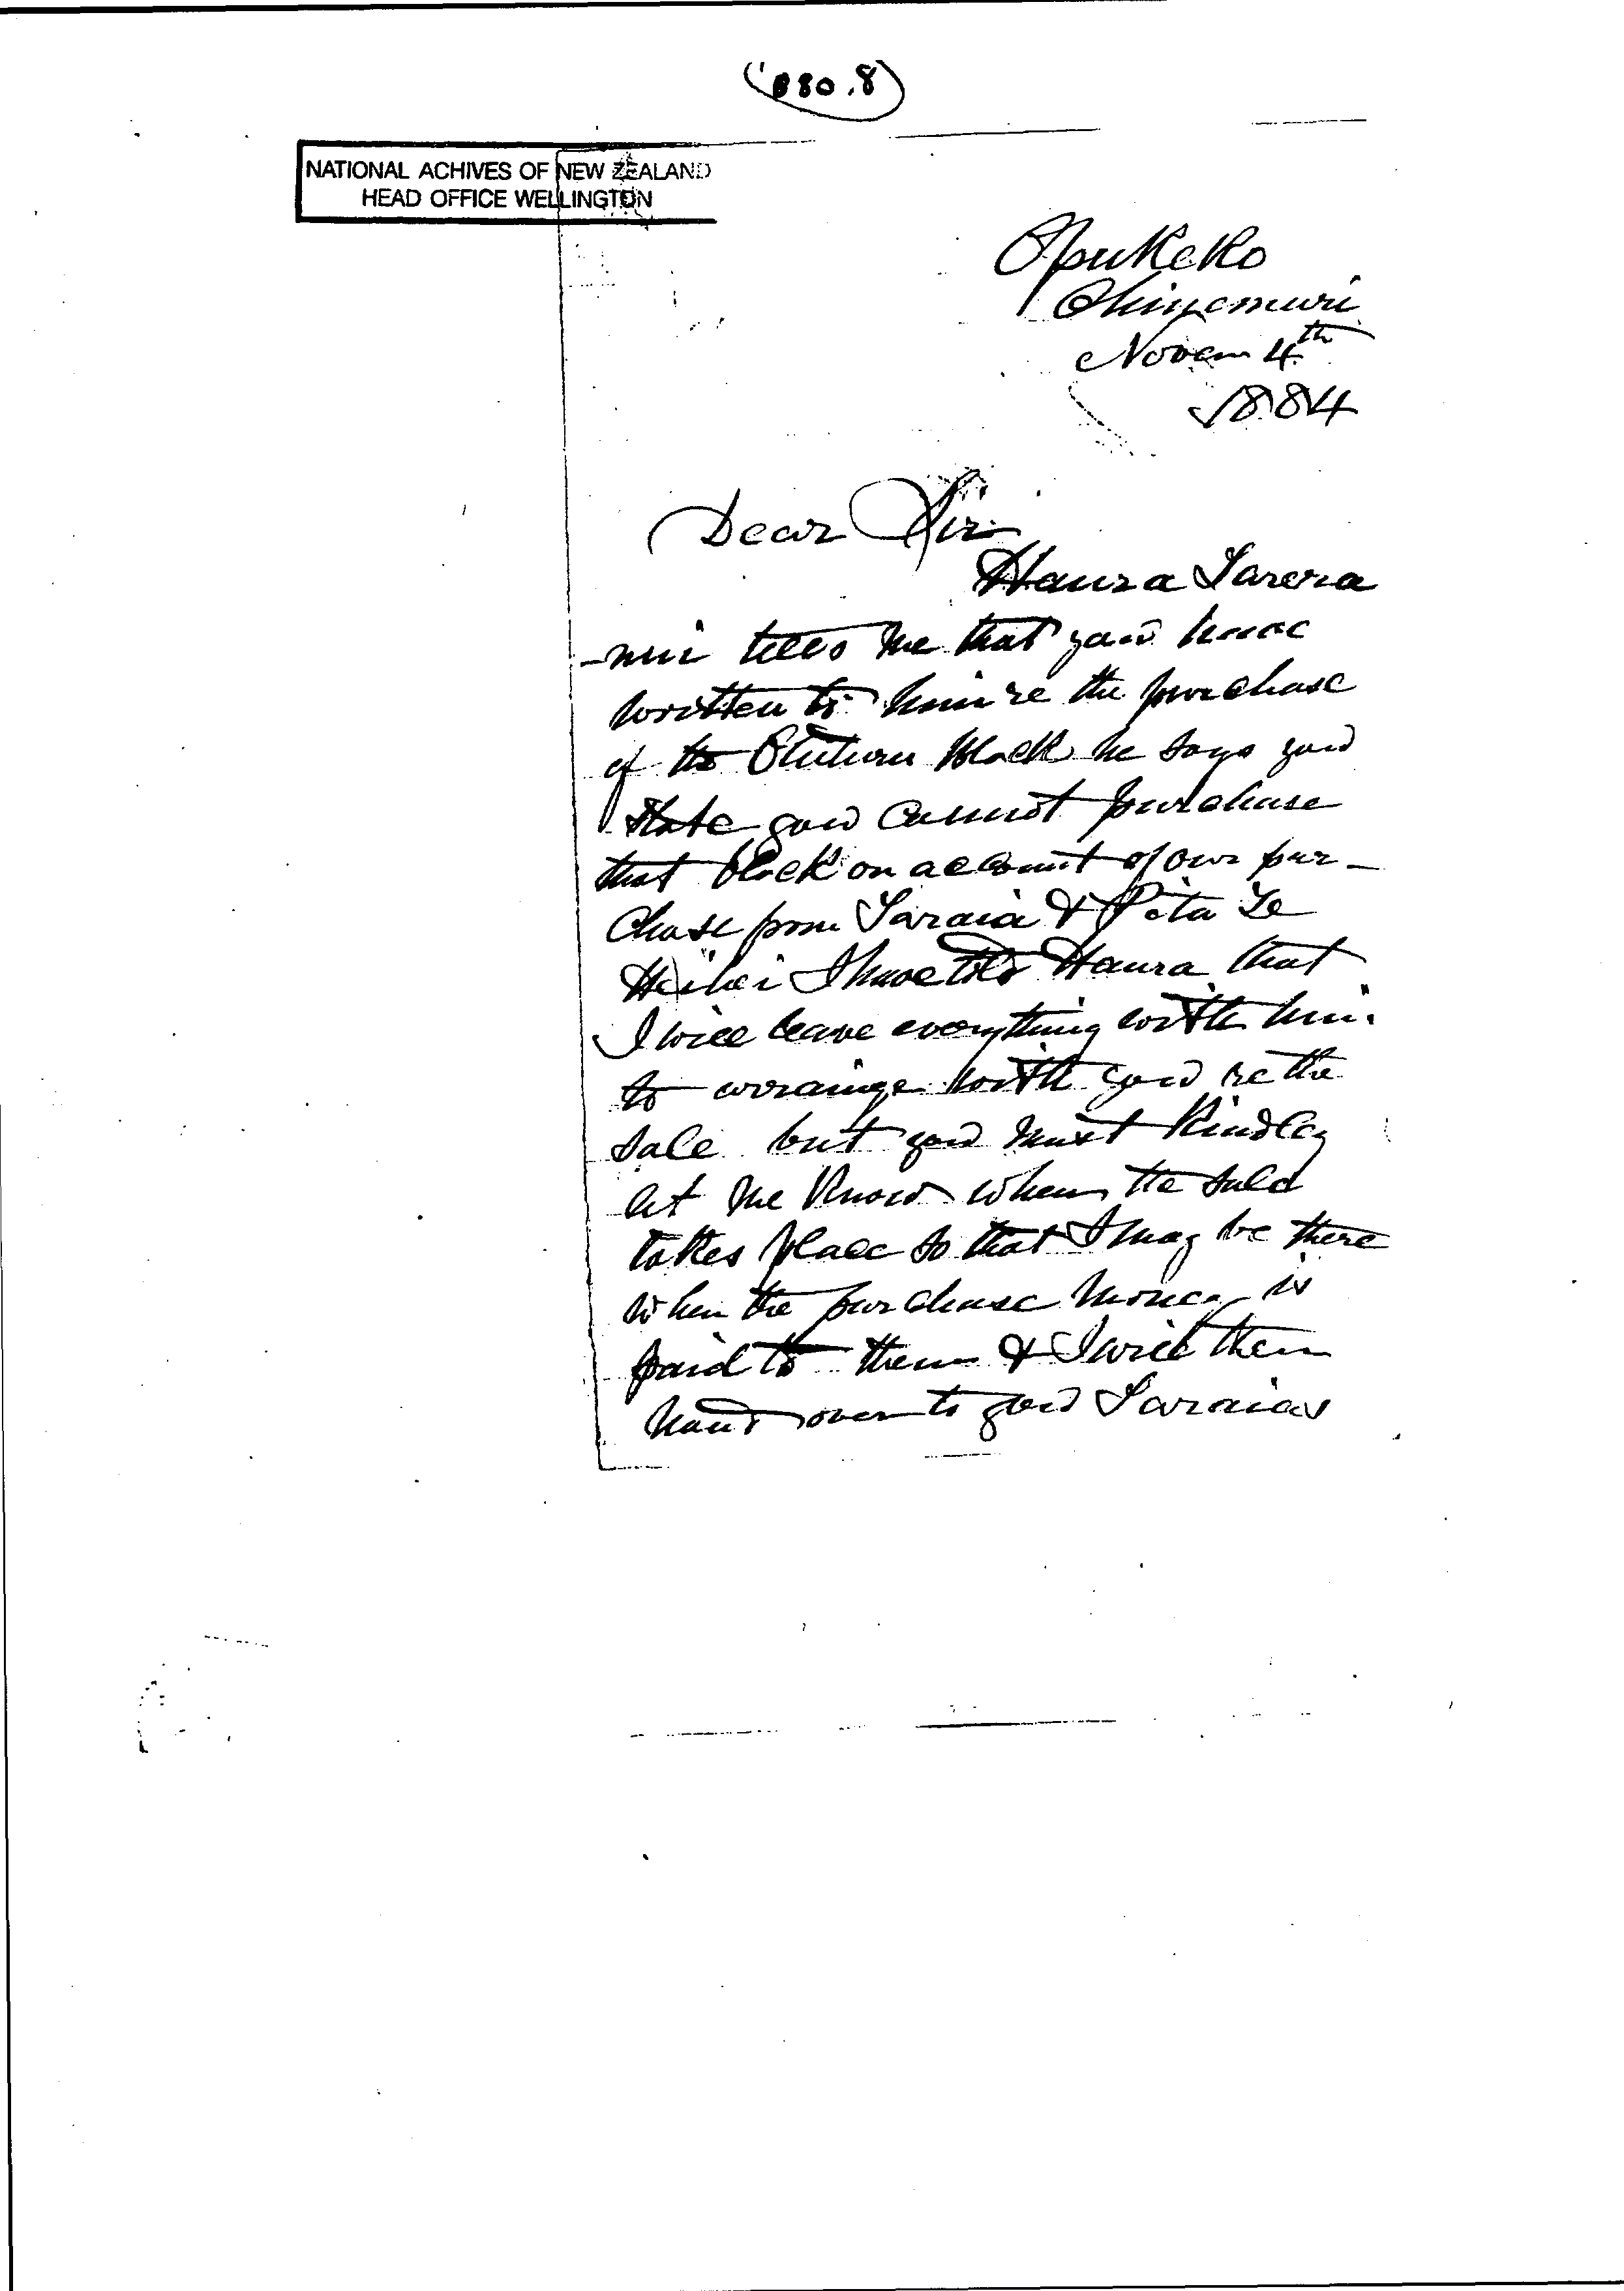 (880.8)
NATIONAL ACHIVES OF NEW ZEALAND
HEAD OFFICE WELLINGTON
Opukeko
Ohinemuri
Novem 4th
1884
Dear Sir
Haura Tarera
-nui tells me that you have
written to him re the purchase
of the block he says you
state you cannot purchase
that block on account of our pur-
chase from Taraia & Pita Te
I have told Haura that
I will leave everything with him
to arrange with you re the
sale but you must kindley
let me know when the sale
takes place so that I may be there
when the purchase money is
paid to them & I will then
hand over to you Taraias